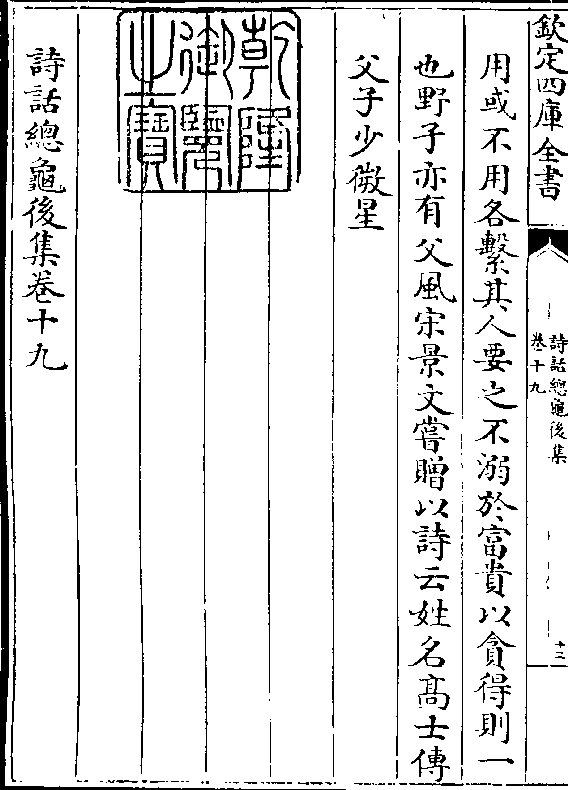 欽定四庫全書
詩話總龜後集
卷十九
十二
用或不用各繫其人要之不溺於富貴以貪得則一
也野子亦有父風宋景文嘗贈以詩云姓名高士傳
父子少微星
乾隆
御覽
之寶
詩話總龜後集卷十九